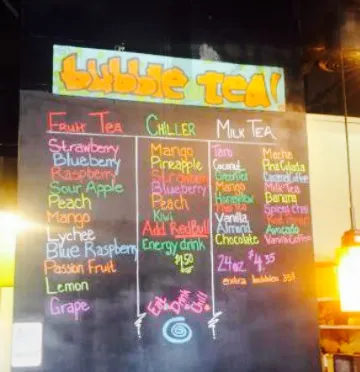 bubble tea!
Fruit Tea
Strawberry
Blueberry
Raspberry
Sour Apple
Peach
Mango
Lychee
Blue Raspberry
Passion Fruit
Lemon
Grape
Chiller
Mango
Pineapple
Strawberry
Blueberry
Peach
Kiwi
Add RedBull
Energy drink
$1.50
Eat Drink Chill!
Milk Tea
Taro
Coconut
Green Tea
Mango
Honeydew
Thai Tea
Vanilla
Almond
Chocolate
Mocha
Pina Colada
Caramel Coffee
Milk Tea
Banana
Spiced Chai
Red Bean
Avocado
Vanilla Coffee
24oz $4.35
extra bubbles 35¢